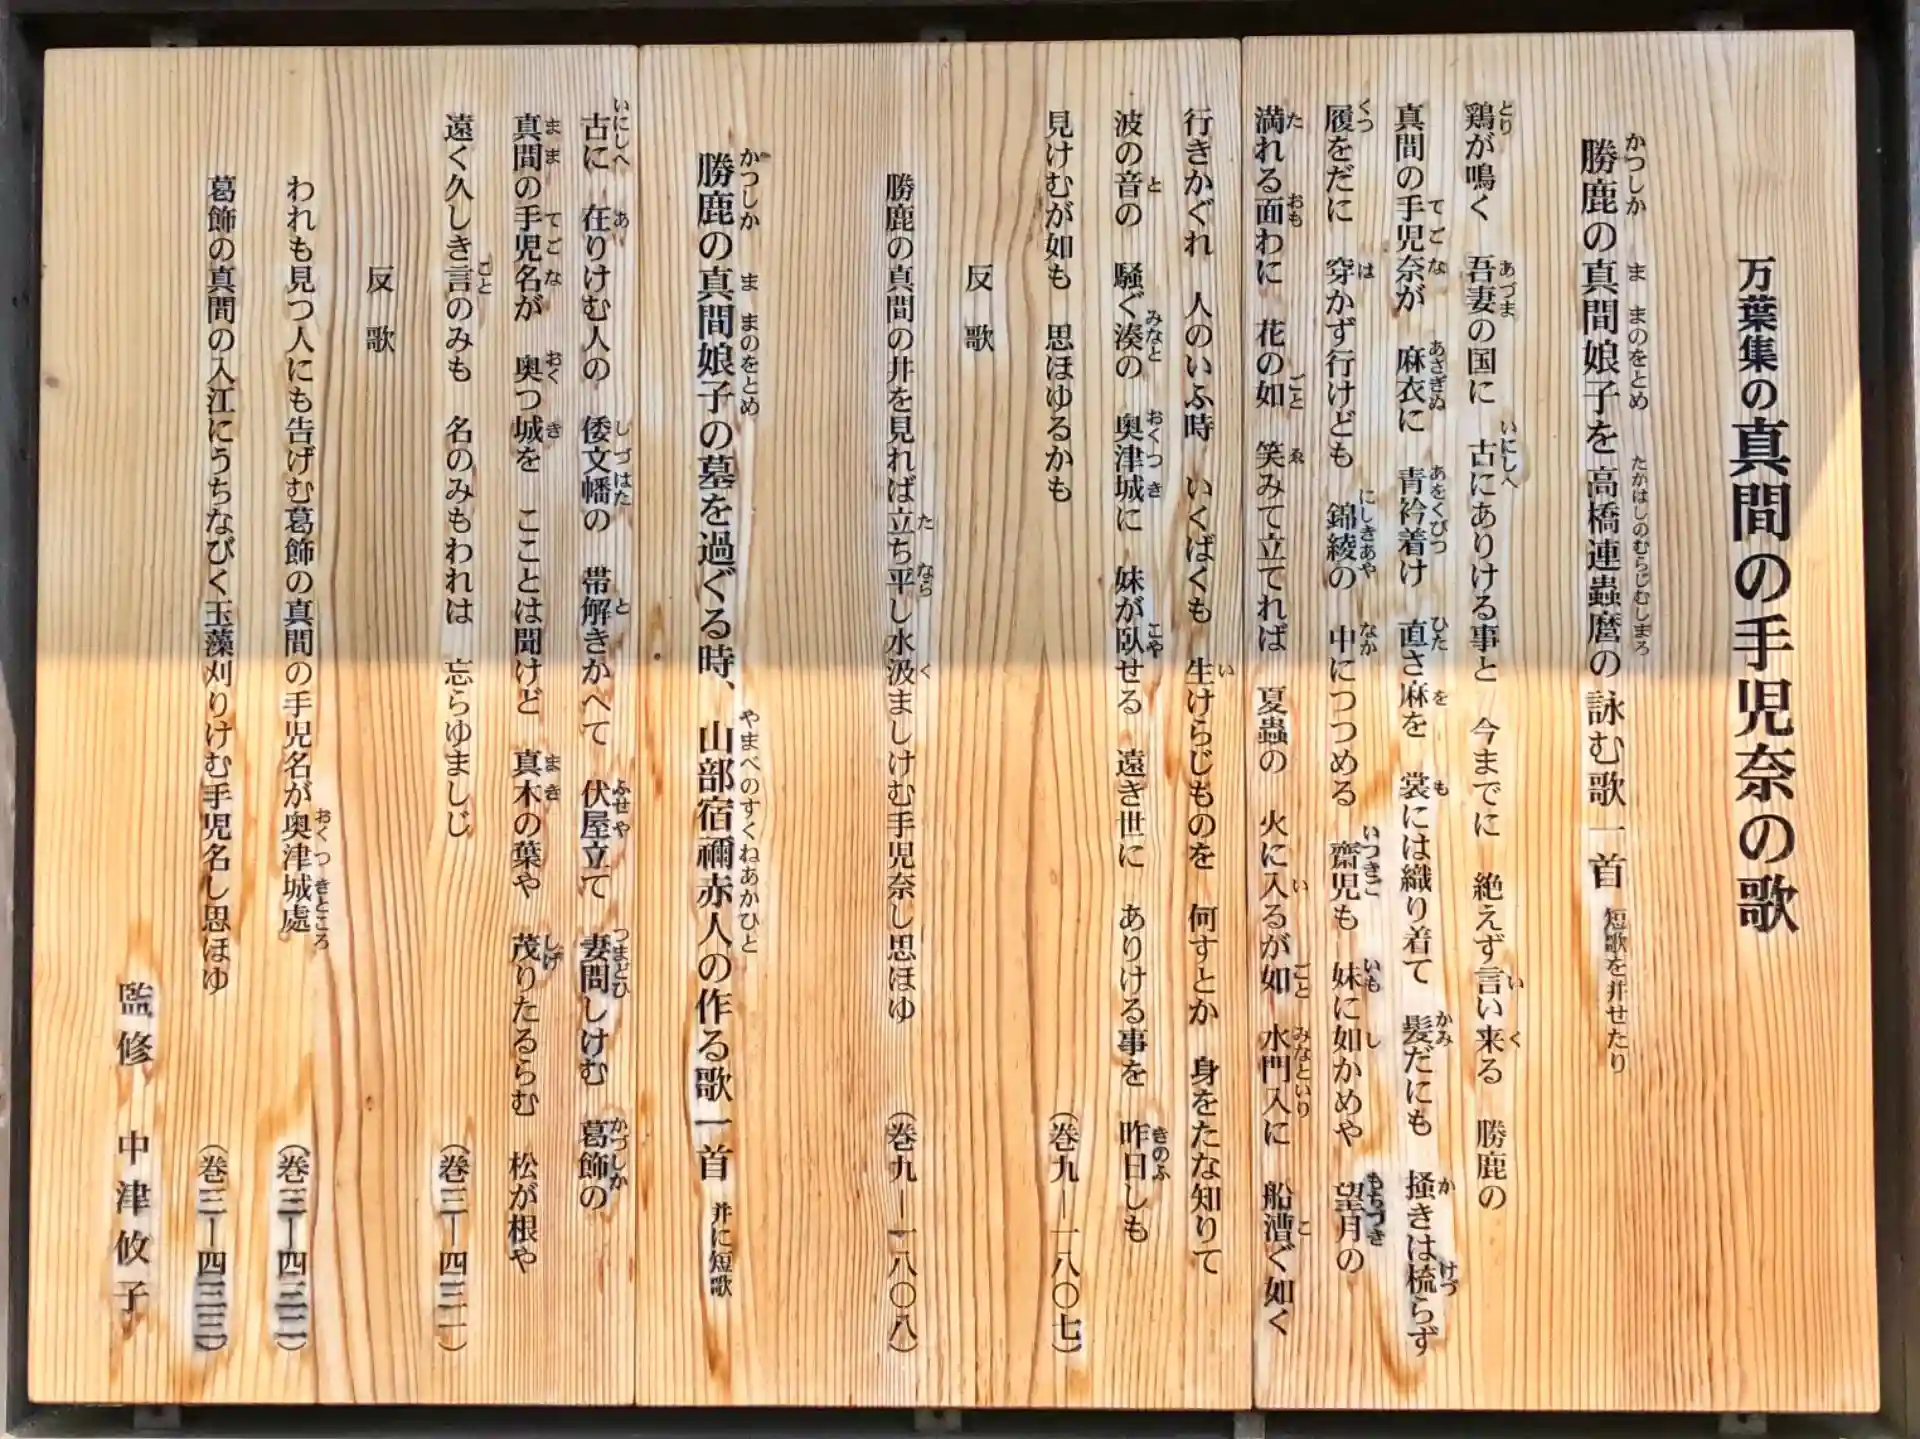 万葉集の真間の手児奈の歌
勝鹿の真間娘子を高橋連蟲麿の詠む歌一首 短歌を并せたり
鶏が鳴く 吾妻の国に 古にありける事と 今までに 絶えず言い来る 勝鹿の
真間の手児奈が 麻衣に 青衿着け 直さ麻を 裳には織り着て 髪だにも 掻きは梳らず
履をだに 穿かず行けども 錦綾の 中につつめる 齋児も 妹に如かめや 望月の
満れる面わに 花の如 笑みて立てれば 夏蟲の 火に入るが如 水門入に 船漕ぐ如く
行きかぐれ 人のいふ時 いくばくも 生けらじものを 何すとか 身をたな知りて
波の音の 騒ぐ湊の 奥津城に 妹が臥せる 遠き世に ありける事を 昨日しも
見けむが如も 思ほゆるかも (巻九―一八〇七)
反歌
勝鹿の真間の井を見れば立ち平し水汲ましけむ手児奈し思ほゆ (巻九―一八〇八)
勝鹿の真間娘子の墓を過ぐる時、山部宿禰赤人の作る歌一首 并に短歌
古に 在りけむ人の 倭文幡の 帯解きかへて 伏屋立て 妻問しけむ 葛飾の
真間の手児名が 奥つ城を こことは聞けど 真木の葉や 茂りたるらむ 松が根や
遠く久しき言のみも 名のみもわれは 忘らゆましじ (巻三―四三一)
反歌
われも見つ人にも告げむ葛飾の真間の手児名が奥津城處 (巻三―四三二)
葛飾の真間の入江にうちなびく玉藻刈りけむ手児名し思ほゆ (巻三―四三三)
監修 中津攸子